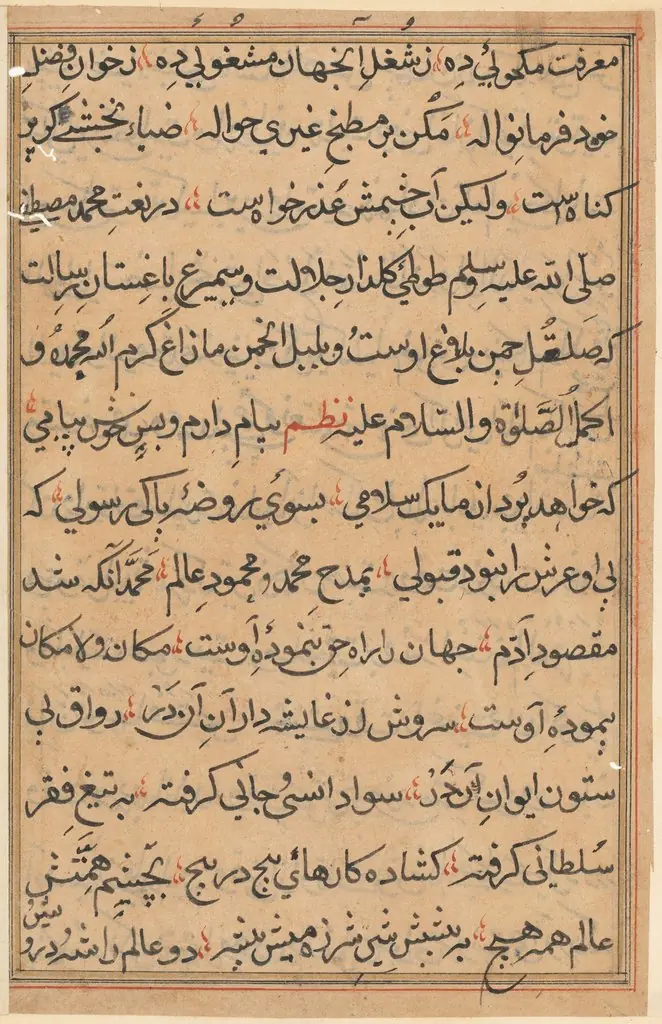 معرفت مکحولیٔ دِه ؞ زشغلِ انجهان مشغولی دِه ؞ زخوانِ فضلِ
خود فرما نواله ؞ مَکُن بر مطبخِ غیری حواله ؞ ضیاء نخشبی گر پر
کناه است ؞ ولیکن آب چشمش عُذر خواه ست ؞ در نعتِ محمد مصطفی
صلّی الله علیه وسلم طوطیٔ کلذارِ جلالت و سیمرغِ باغستانِ رسالت
که صلصُلِ چمن بلاغ اوستُ و بلبل انجمن مازاغ کرم الله محمده و
اکمل الصَّلوٰة والسّلام علیه نظم پیامِ دارم و بس خوش پیامی
که خواهد بُرد از ما یک سلامی ؞ بسویُ روضهٔ پاکی رسولی ؞ که
بی او عرش را نبود قبولی ؞ بمدح محمد و محمودِ عالم ؞ محمَّد آنکه شد
مقصودِ آدم ؞ جهان را راه حق بنمودهٔ اوست ؞ مکان ولامکان
پیمودهٔ اوست ؞ سروش از غایشه دارانِ آن دَر ؞ رواق بی
ستون ایوانِ آن دَر ؞ سواد انسی و جانی گرفته ؞ به تیغِ فقر
سُلطانی گرفته ؞ کشاده کارهایٔ پیچ در پیچ ؞ بچشمِ همّتش
عالم همه هیچ ؞ به پیشش شیر شرزه میش پیشه ؞ دو عالم را شده زو